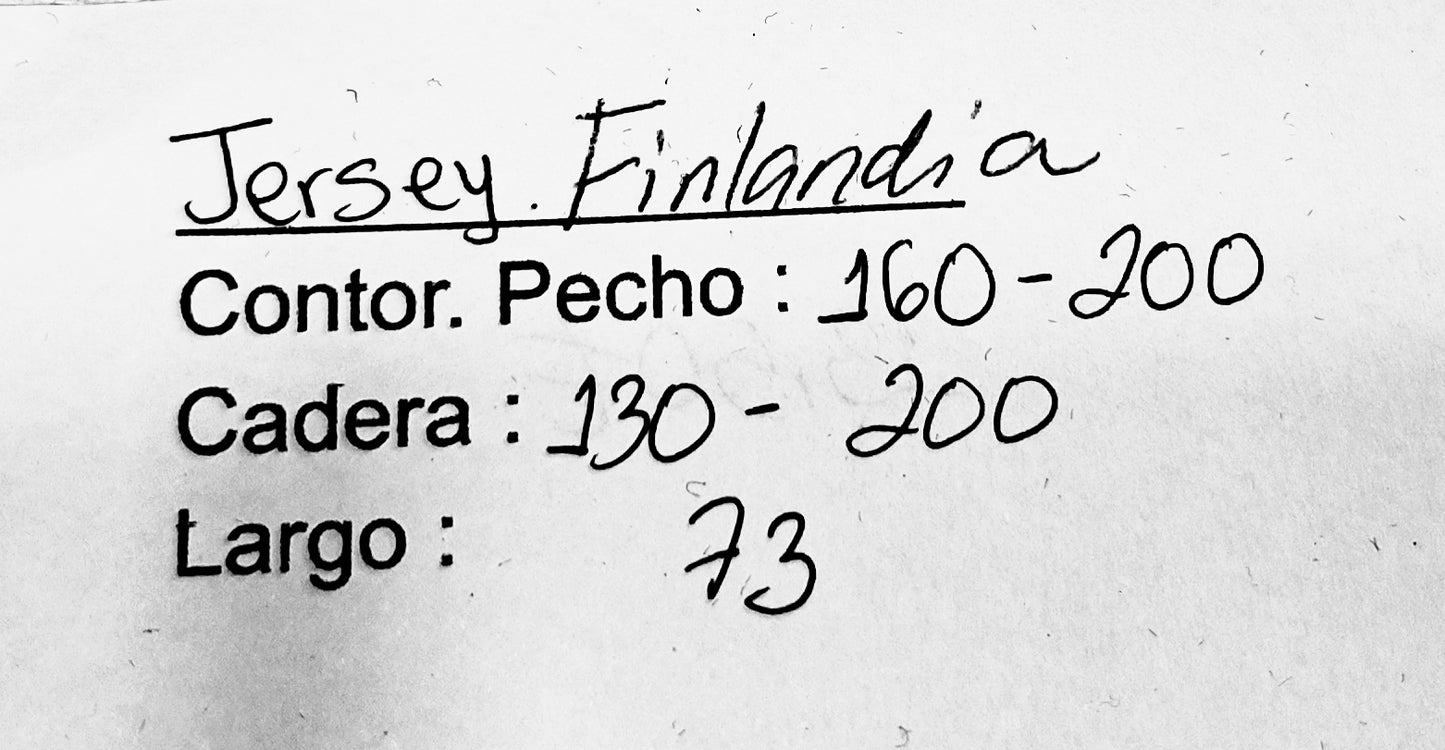 Jersey. Finlandia
Contor. Pecho : 160-200
Cadera : 130 - 200
Largo : 73